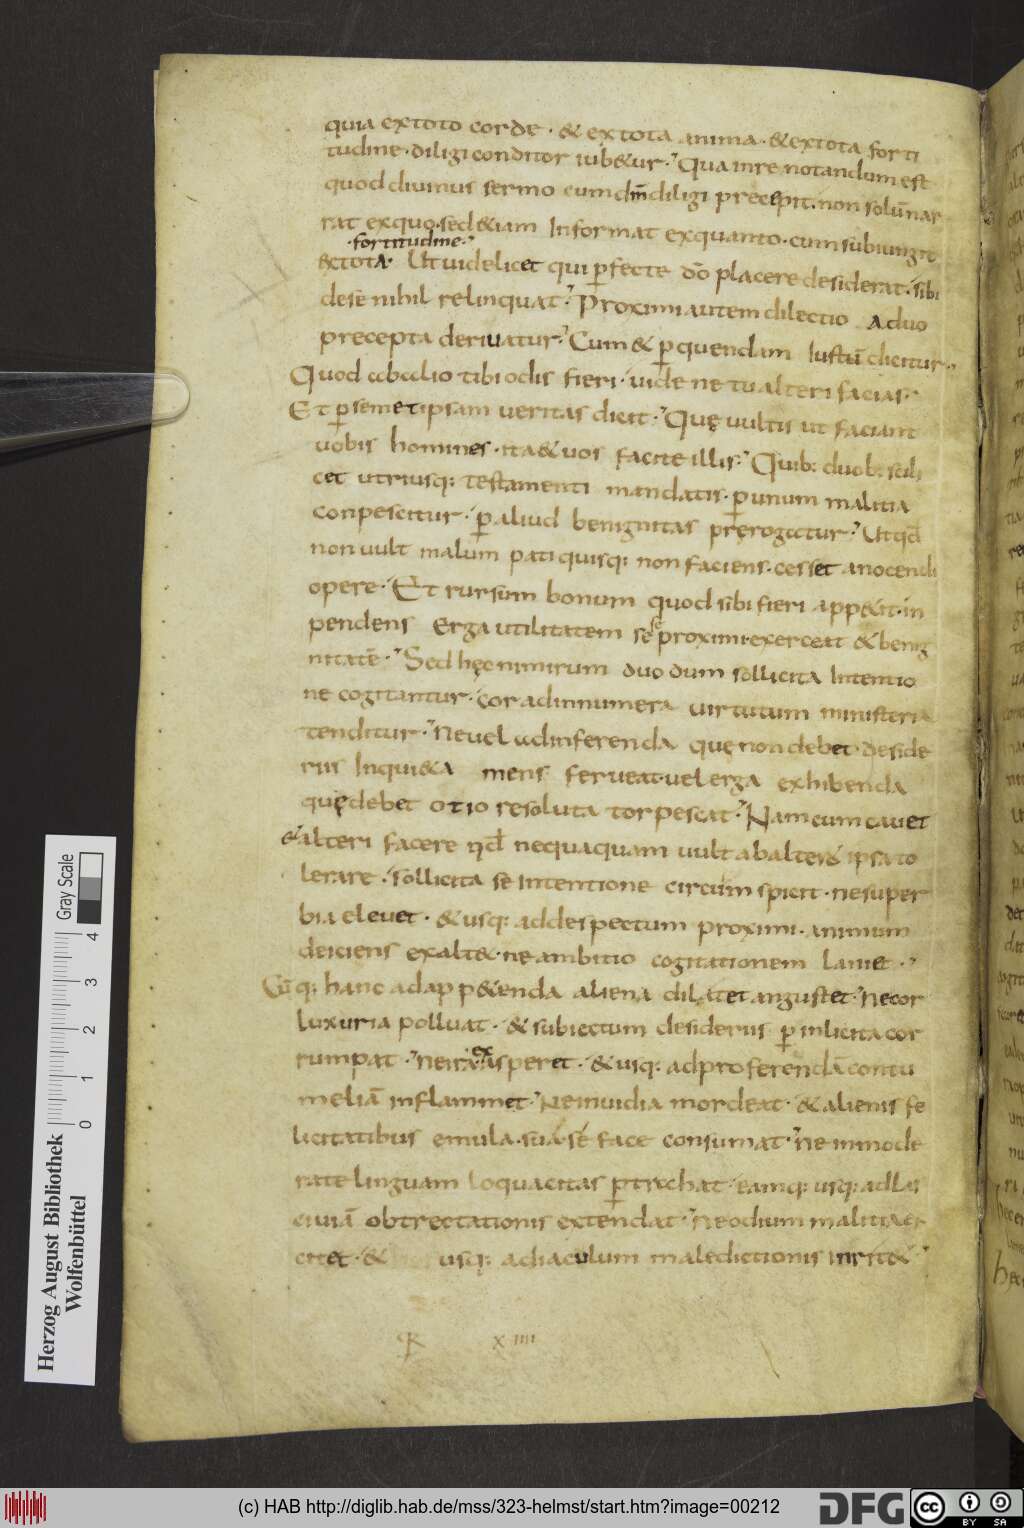 quia ex toto corde · & ex tota anima · & ex tota forti
tudine · diligi conditor iub&ur · Qua in re notandum est
quod diuinus sermo cum dm̄ diligi precepit · non solū nar
rat ex quo · sed &iam Informat ex quanto · cum subiungit
· fortitudine ·
& ex tota · Ut uidelicet qui ꝑfecte dō placere desiderat · sibi
de se nihil relinquat · Proximi autem dilectio Aduo
precepta deriuatur · Cum & ꝑ quendam Iustū dicitur ·
Quod ab alio tibi odis fieri · uide ne tu alteri facias ·
Et ꝑ semetipsam ueritas dicit · Quę uultis ut faciant
uobis homines · ita & uos facite illis · Quib: duob: scili
cet utriusq: testamenti mandatis · ꝑ unum malitia
conpescitur · ꝑ aliud benignitas prerogatur · Ut qd
non uult malum pati quisq: non faciens · cesset a nocendi
opere · Et rursum bonum quod sibi fieri app&it · in
pendens Erga utilitatem se proximi · exerceat & benig
nitatē · Sed hęc nimirum duo dum sollicita Intentio
ne cogitantur · cor ad innumera uirtutum ministeria
tenditur · Ne uel ad inferenda quę non debet · deside
riis Inqui&a mens ferueat · uel erga exhibenda
quę debet otio resoluta torpescat · Nam cum cauet
& alteri facere qd nequaquam uult ab alte& ipsa to
lerare · sollicita se Intentione circum spicit · ne super
bia eleuet · & usq: ad despectum proximi · animum
deiciens exalt& · ne ambitio cogitationem laniet ·
Cū q: hanc ad app&enda aliena dilatet angustet · Ne cor
luxuria polluat · & subiectum desideriis ꝑ inlicita cor
rumpat · Ne ira ex asperet · & usq: ad proferendā contu
meliā inflammet · Ne inuidia mordeat · & alienis fe
licitatibus emula · sua se face consumat · Ne inmode
rate linguam loquacitas ꝑtrahat · eamq: usq: ad las
ciuiā obtrectationis extendat · Ne odium malitia ex
citet · & usq: ad iaculum maledictionis inrit& ·
x iiii
Gray Scale
0 1 2 3 4
Herzog August Bibliothek
Wolfenbüttel
(c) HAB http://diglib.hab.de/mss/323-helmst/start.htm?image=00212
DFG
cc
BY SA